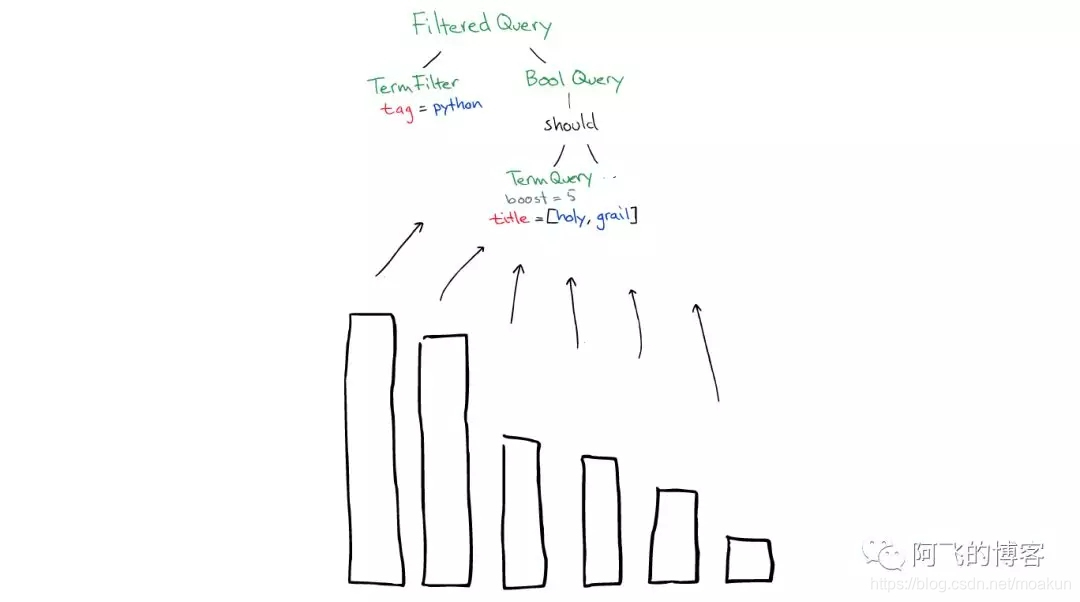 Filtered Query
TermFilter
tag = python
Bool Query
should
TermQuery ...
boost = 5
title = [holy, grail]
阿飞的博客
https://blog.csdn.net/moakun